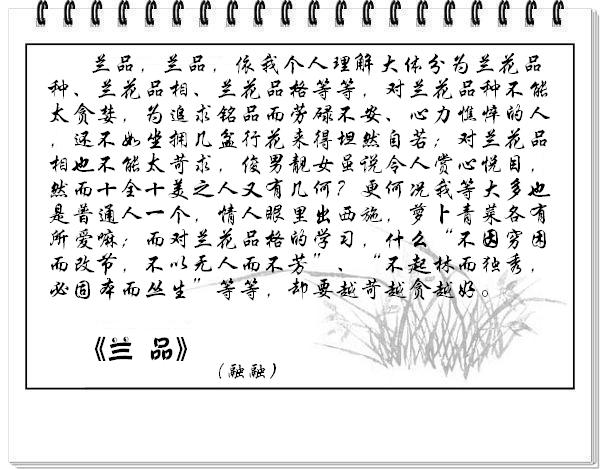 兰品，兰品，依我个人理解大体分为兰花品
种、兰花品相、兰花品格等等，对兰花品种不能
太贪婪，为追求铭品而劳碌不安、心力憔悴的人
，还不如坐拥几盆行花来得坦然自若；对兰花品
相也不能太苛求，俊男靓女虽说令人赏心悦目，
然而十全十美之人又有几何？更何况我等大多也
是普通人一个，情人眼里出西施，萝卜青菜各有
所爱嘛；而对兰花品格的学习，什么“不因穷困
而改节，不以无人而不芳”、“不起林而独秀，
必固本而丛生”等等，却要越苛越贪越好。
《兰 品》
（融融）